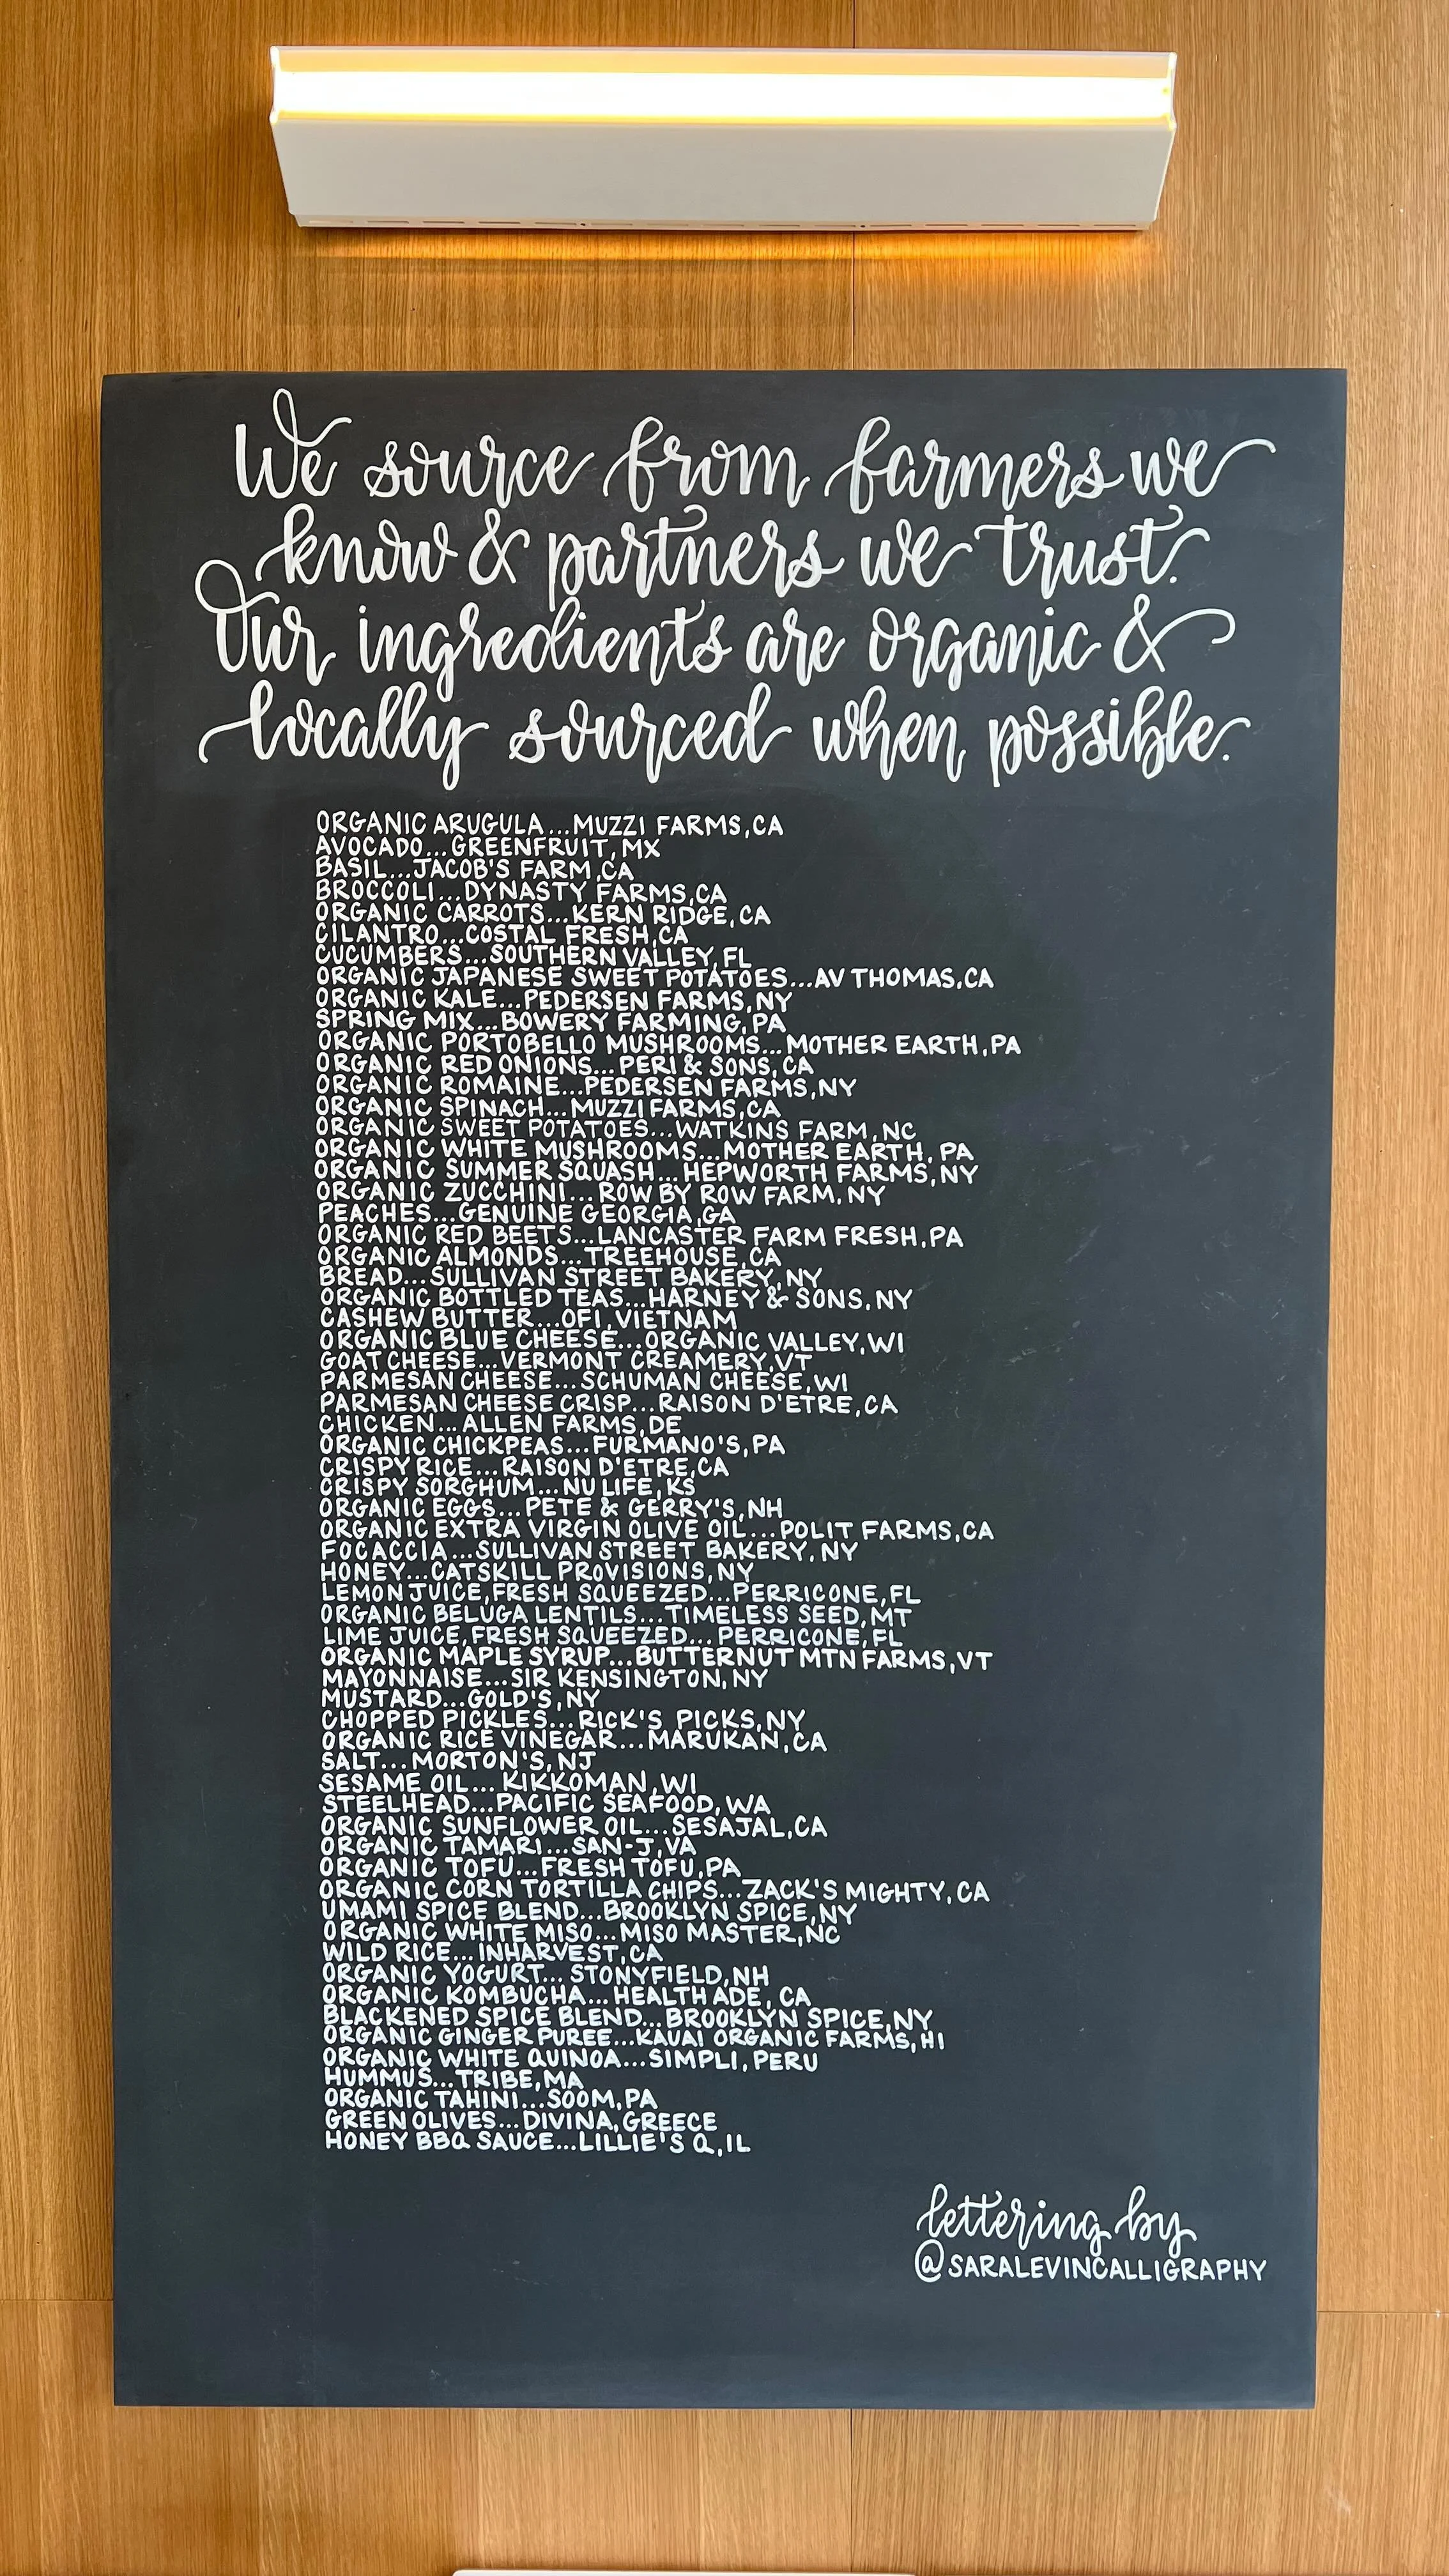 We source from farmers we
know & partners we trust.
Our ingredients are organic &
locally sourced when possible.
ORGANIC ARUGULA...MUZZI FARMS,CA
AVOCADO...GREENFRUIT,MX
BASIL...JACOB'S FARM,CA
BROCCOLI...DYNASTY FARMS,CA
ORGANIC CARROTS...KERN RIDGE,CA
CILANTRO...COSTAL FRESH,CA
CUCUMBERS...SOUTHERN VALLEY,FL
ORGANIC JAPANESE SWEET POTATOES...AV THOMAS,CA
ORGANIC KALE...PEDERSEN FARMS,NY
SPRING MIX...BOWERY FARMING,PA
ORGANIC PORTOBELLO MUSHROOMS...MOTHER EARTH,PA
ORGANIC RED ONIONS...PERI & SONS,CA
ORGANIC ROMAINE...PEDERSEN FARMS,NY
ORGANIC SPINACH...MUZZI FARMS,CA
ORGANIC SWEET POTATOES...WATKINS FARM,NC
ORGANIC WHITE MUSHROOMS...MOTHER EARTH, PA
ORGANIC SUMMER SQUASH...HEPWORTH FARMS,NY
ORGANIC ZUCCHINI...ROW BY ROW FARM,NY
PEACHES...GENUINE GEORGIA,GA
ORGANIC RED BEETS...LANCASTER FARM FRESH,PA
ORGANIC ALMONDS...TREEHOUSE,CA
BREAD...SULLIVAN STREET BAKERY,NY
ORGANIC BOTTLED TEAS...HARNEY & SONS,NY
CASHEW BUTTER...OFI,VIETNAM
ORGANIC BLUE CHEESE...ORGANIC VALLEY,WI
GOAT CHEESE...VERMONT CREAMERY,VT
PARMESAN CHEESE...SCHUMAN CHEESE,WI
PARMESAN CHEESE CRISP...RAISON D'ETRE,CA
CHICKEN...ALLEN FARMS,DE
ORGANIC CHICKPEAS...FURMANO'S,PA
CRISPY RICE...RAISON D'ETRE,CA
CRISPY SORGHUM...NU LIFE,KS
ORGANIC EGGS...PETE & GERRY'S,NH
ORGANIC EXTRA VIRGIN OLIVE OIL...POLIT FARMS,CA
FOCACCIA...SULLIVAN STREET BAKERY,NY
HONEY...CATSKILL PROVISIONS,NY
LEMON JUICE,FRESH SQUEEZED...PERRICONE,FL
ORGANIC BELUGA LENTILS...TIMELESS SEED,MT
LIME JUICE,FRESH SQUEEZED...PERRICONE,FL
ORGANIC MAPLE SYRUP...BUTTERNUT MTN FARMS,VT
MAYONNAISE...SIR KENSINGTON,NY
MUSTARD...GOLD'S,NY
CHOPPED PICKLES...RICK'S PICKS,NY
ORGANIC RICE VINEGAR...MARUKAN,CA
SALT...MORTON'S,NJ
SESAME OIL...KIKKOMAN,WI
STEELHEAD...PACIFIC SEAFOOD,WA
ORGANIC SUNFLOWER OIL...SESAJAL,CA
ORGANIC TAMARI...SAN-J,VA
ORGANIC TOFU...FRESH TOFU,PA
ORGANIC CORN TORTILLA CHIPS...ZACK'S MIGHTY,CA
UMAMI SPICE BLEND...BROOKLYN SPICE,NY
ORGANIC WHITE MISO...MISO MASTER,NC
WILD RICE...INHARVEST,CA
ORGANIC YOGURT...STONYFIELD,NH
ORGANIC KOMBUCHA...HEALTH ADE, CA
BLACKENED SPICE BLEND...BROOKLYN SPICE,NY
ORGANIC GINGER PUREE...KAUAI ORGANIC FARMS,HI
ORGANIC WHITE QUINOA...SIMPLI,PERU
HUMMUS...TRIBE,MA
ORGANIC TAHINI...SOOM,PA
GREEN OLIVES...DIVINA,GREECE
HONEY BBQ SAUCE...LILLIE'S Q,IL
lettering by
@SARALEVINCALLIGRAPHY